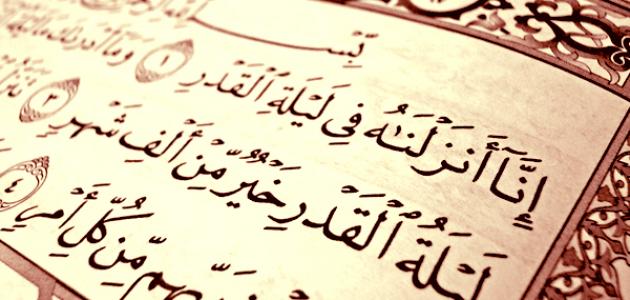 بِسْ
إِنَّآ أَنزَلْنَٰهُ فِى لَيْلَةِ ٱلْقَدْرِ ١ وَمَآ أَدْرَىٰكَ مَا لَيْلَةُ
لَيْلَةُ ٱلْقَدْرِ خَيْرٌ مِّنْ أَلْفِ شَهْرٍ ٣
رَبِّهِم مِّن كُلِّ أَمْرٍ ٤